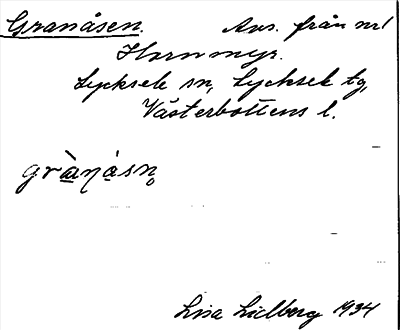 Granåsen. Avs. från nr 1
Hornmyr.
Lycksele sn, Lycksele tg,
Västerbottens l.
gràn̥ásn̥
Lisa Lidberg 1934